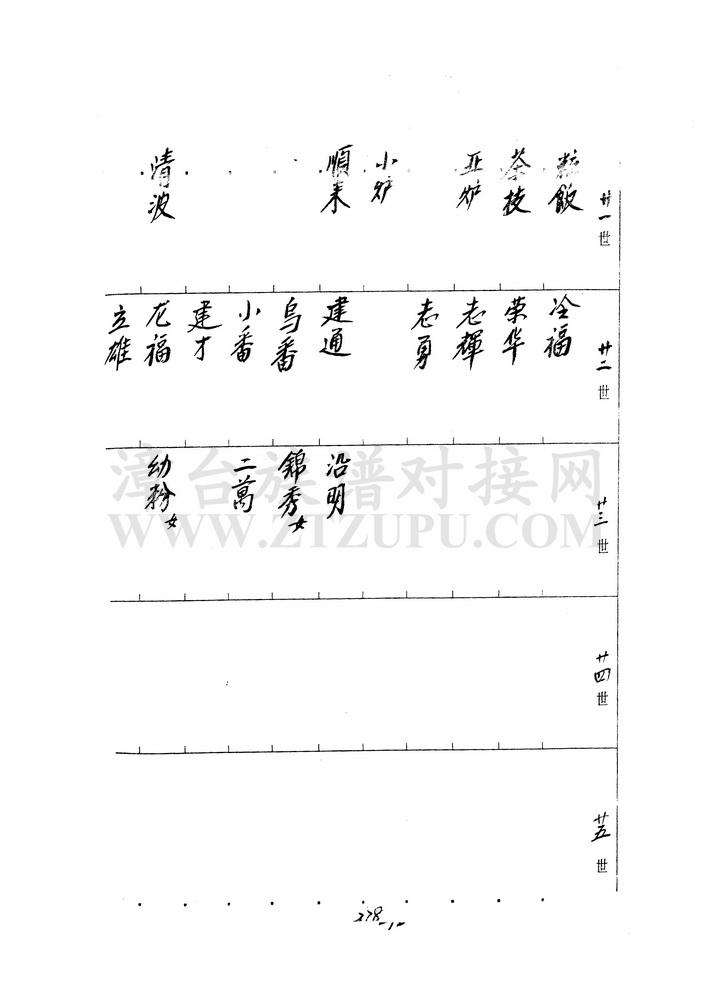 廿一世
粽飯
茶技
亚炉
小炉
順来
清波
廿二世
冷福
荣华
志輝
志勇
建通
烏番
小番
建才
龙福
立雄
廿三世
沿明
錦秀女
二萬
幼粉女
廿四世
廿五世
漳台族谱对接网
WWW.ZTZUPU.COM
278-1-